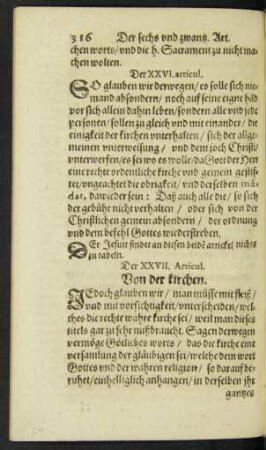 316 Der sechs vnd zwantz. Art.
chen worts/ vnd die h. Sacrament zu nicht ma
chen wolten.
Der XXVI. articul.
SO glauben wir derwegen/ es solle sich nie-
mand absondern/ noch auf seine eigne hild
vor sich allein dahin leben/ sondern alle vnd jede
personen/ sollen zu gleich vnd mit einander/ die
einigkeit der kirchen vnterhalten/ sich der allge-
meinen vnterweisung/ vnd dem joch Christi/
vnterwerfen/ es sei wo es wolle/ da Gott der Herr
eine rechte ordentliche kirche vnd gemein gestif-
tet/ vngeachtet die obrigkeit/ vnd derselben mā-
dat, dawieder sein: Daß auch alle die/ so sich
der gebühr nicht verhalten/ oder sich von der
Christlichen gemein absondern/ der ordnung
vnd dem befehl Gottes wiederstreben.
DEr Jesuit findet an diesen beidē artickel nichts
zu tadeln.
Der XXVII. Articul.
Von der kirchen.
JEdoch glauben wir/ man müsse mit fleiß/
vnd mit vorsichtigkeit/ vnterscheiden/ wel-
ches die rechte wahre kirche sei/ weil man dieses
titels gar zu sehr mißbraucht. Sagen derwegen
vermöge Götliches worts/ das die kirche eine
versamlung der gläubigen sei/ welche dem wort
Gottes vnd der wahren religion/ so darauf be-
ruhet/ einhelliglich anhangen/ in derselben ihr
gantzes